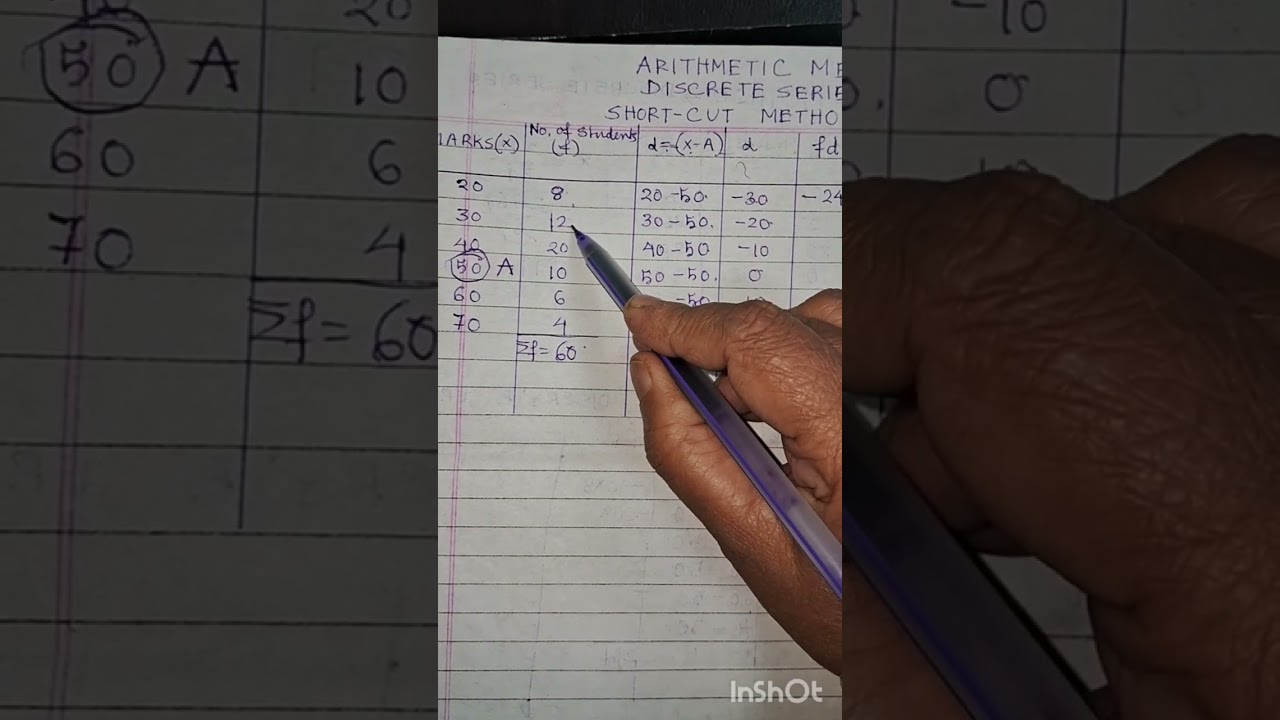 ARITHMETIC
DISCRETE SERIE
SHORT-CUT METHO
MARKS(X) No. of Students (f) d=(X-A) d fd
20 8 20-50 -30 -24
30 12 30-50 -20
40 20 40-50 -10
50 A 10 50-50 0
60 6 -50
70 4
Σf=60
20 -10
50 A 10 0
60 6
70 4
Σf=60
InShOt